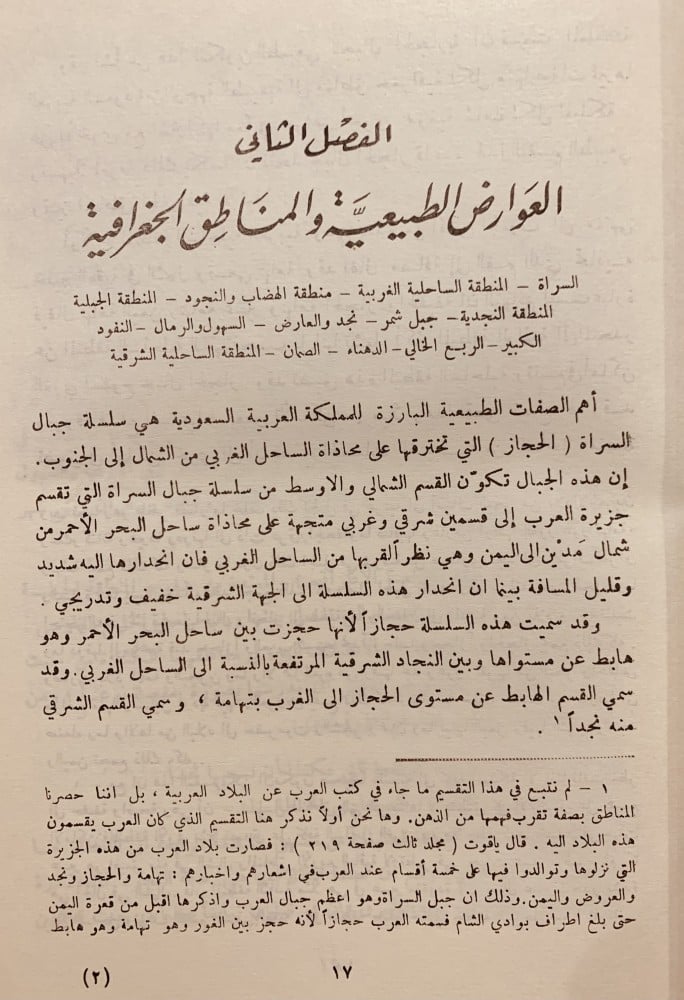 الفصل الثاني
العوارض الطبيعيَّة والمناطق الجغرافية
السراة – المنطقة الساحلية الغربية – منطقة الهضاب والنجود – المنطقة الجبلية
المنطقة النجدية – جبل شمر – نجد والعارض – السهول والرمال – النفود
الكبير – الربع الخالي – الدهناء – الصمان – المنطقة الساحلية الشرقية
أهم الصفات الطبيعية البارزة للمملكة العربية السعودية هي سلسلة جبال
السراة ( الحجاز ) التي تخترقها على محاذاة الساحل الغربي من الشمال إلى الجنوب.
إن هذه الجبال تكوّن القسم الشمالي والاوسط من سلسلة جبال السراة التي تقسم
جزيرة العرب إلى قسمين شرقي وغربي متجهة على محاذاة ساحل البحر الأحمر من
شمال مَدْين الى اليمن وهي نظراً لقربها من الساحل الغربي فان انحدارها اليه شديد
وقليل المسافة بينما ان انحدار هذه السلسلة الى الجهة الشرقية خفيف وتدريجي .
وقد سميت هذه السلسلة حجازاً لأنها حجزت بين ساحل البحر الأحمر وهو
هابط عن مستواها وبين النجاد الشرقية المرتفعة بالنسبة الى الساحل الغربي. وقد
سمي القسم الهابط عن مستوى الحجاز الى الغرب بتهامة ، وسمي القسم الشرقي
منه نجداً ١ .
١ – لم نتبع في هذا التقسيم ما جاء في كتب العرب عن البلاد العربية ، بل اننا حصرنا
المناطق بصفة تقرب فهمها من الذهن. وها نحن أولاً نذكر هنا التقسيم الذي كان العرب يقسمون
هذه البلاد اليه . قال ياقوت ( مجلد ثالث صفحة ٢١٩ ) : فصارت بلاد العرب من هذه الجزيرة
التي نزلوها وتوالدوا فيها على خمسة أقسام عند العرب في اشعارهم واخبارهم : تهامة والحجاز ونجد
والعروض واليمن. وذلك ان جبل السراة وهو اعظم جبال العرب واذكرها اقبل من قعرة اليمن
حتى بلغ اطراف بوادي الشام فسمته العرب حجازاً لأنه حجز بين الغور وهو تهامة وهو هابط
١٧
(٢)